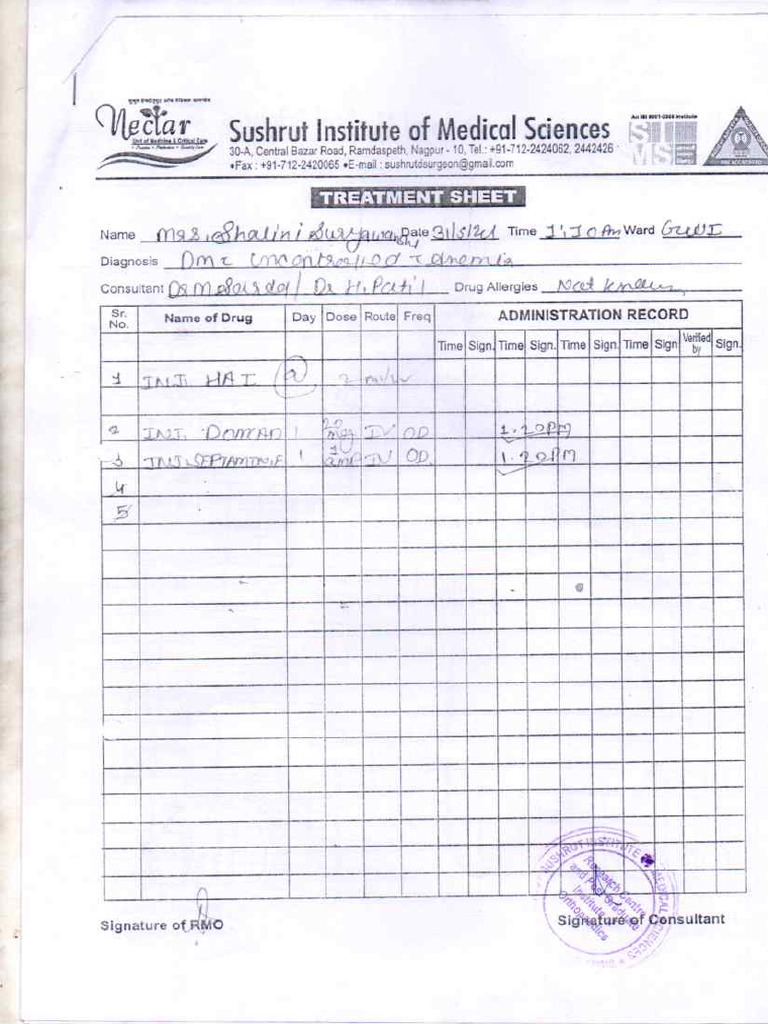 Nectar
Unit of Medicine & Critical Care
Sushrut Institute of Medical Sciences
30-A, Central Bazar Road, Ramdaspeth, Nagpur - 10, Tel.: +91-712-2424062, 2442426
•Fax : +91-712-2420065 •E-mail : sushrutdsurgeon@gmail.com
An ISO 9001-2008 Institute
SIMS
TREATMENT SHEET
Name Mrs. Shalini Suryawanshi Date 31/5/21 Time 1:10 Am Ward
Diagnosis Uncontrolled Anemia
Consultant Dr M Sarda / Dr H. Patil Drug Allergies Not Known
Sr. No. Name of Drug Day Dose Route Freq ADMINISTRATION RECORD
Time Sign. Time Sign. Time Sign. Time Sign Verified by Sign.
1 INJ. HAI @ 2 ml/hr
2 INJ. 1 mg IV OD 1.20PM
3 INJ. 1 1 amp IV OD. 1.20PM
4
5
Signature of RMO Signature of Consultant
SUSHRUT INSTITUTE OF MEDICAL SCIENCES
Research Centre
and Post Graduate
Institute of
Orthopaedics